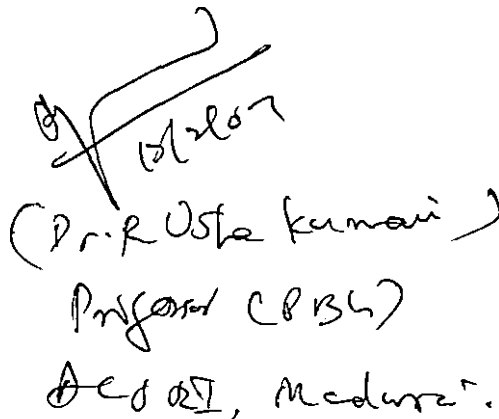 (Dr. R Usha Kumari)
Professor (PBG)
AC & RI, Madurai.